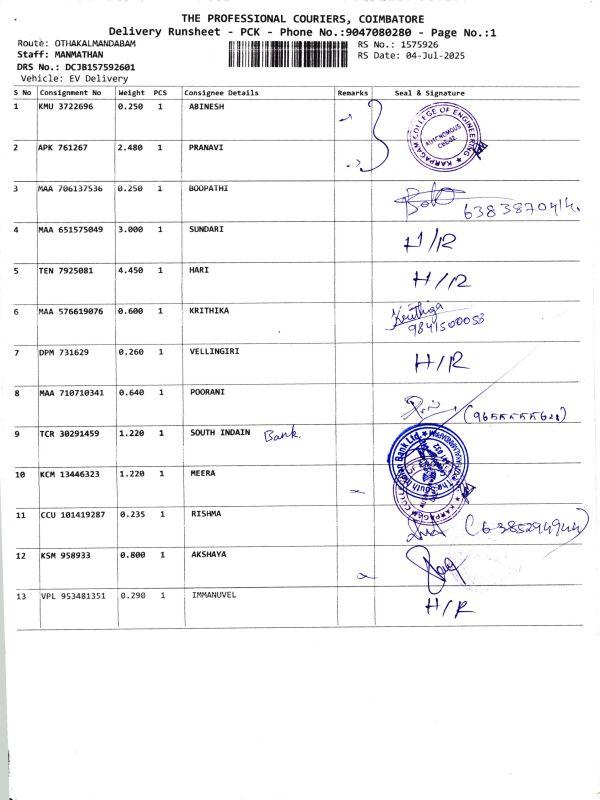 THE PROFESSIONAL COURIERS, COIMBATORE
Delivery Runsheet - PCK - Phone No.:9047080280 - Page No.:1
Route: OTHAKALMANDABAM RS No.: 1575926
Staff: MANMATHAN RS Date: 04-Jul-2025
DRS No.: DCJB157592601
Vehicle: EV Delivery
S No Consignment No Weight PCS Consignee Details Remarks Seal & Signature
1 KMU 3722696 0.250 1 ABINESH
KARPAGAM COLLEGE OF ENGINEERING
AUTONOMOUS
2 APK 761267 2.480 1 PRANAVI
3 MAA 706137536 0.250 1 BOOPATHI
4 MAA 651575049 3.000 1 SUNDARI H/R
5 TEN 7925081 4.450 1 HARI H/R
6 MAA 576619076 0.600 1 KRITHIKA Krithiga
9841500053
7 DPM 731629 0.260 1 VELLINGIRI H/R
8 MAA 710710341 0.640 1 POORANI
9 TCR 30291459 1.220 1 SOUTH INDAIN Bank.
The South Indian Bank Ltd.
10 KCM 13446323 1.220 1 MEERA
11 CCU 101419287 0.235 1 RISHMA (6385294944)
12 KSM 958933 0.800 1 AKSHAYA
13 VPL 953481351 0.290 1 IMMANUVEL H/R